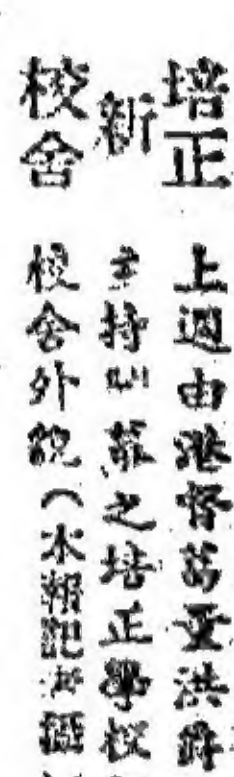 培正
新
校舍
上週由港督葛量洪爵
主持之培正學校
校舍外貌（本報記者攝